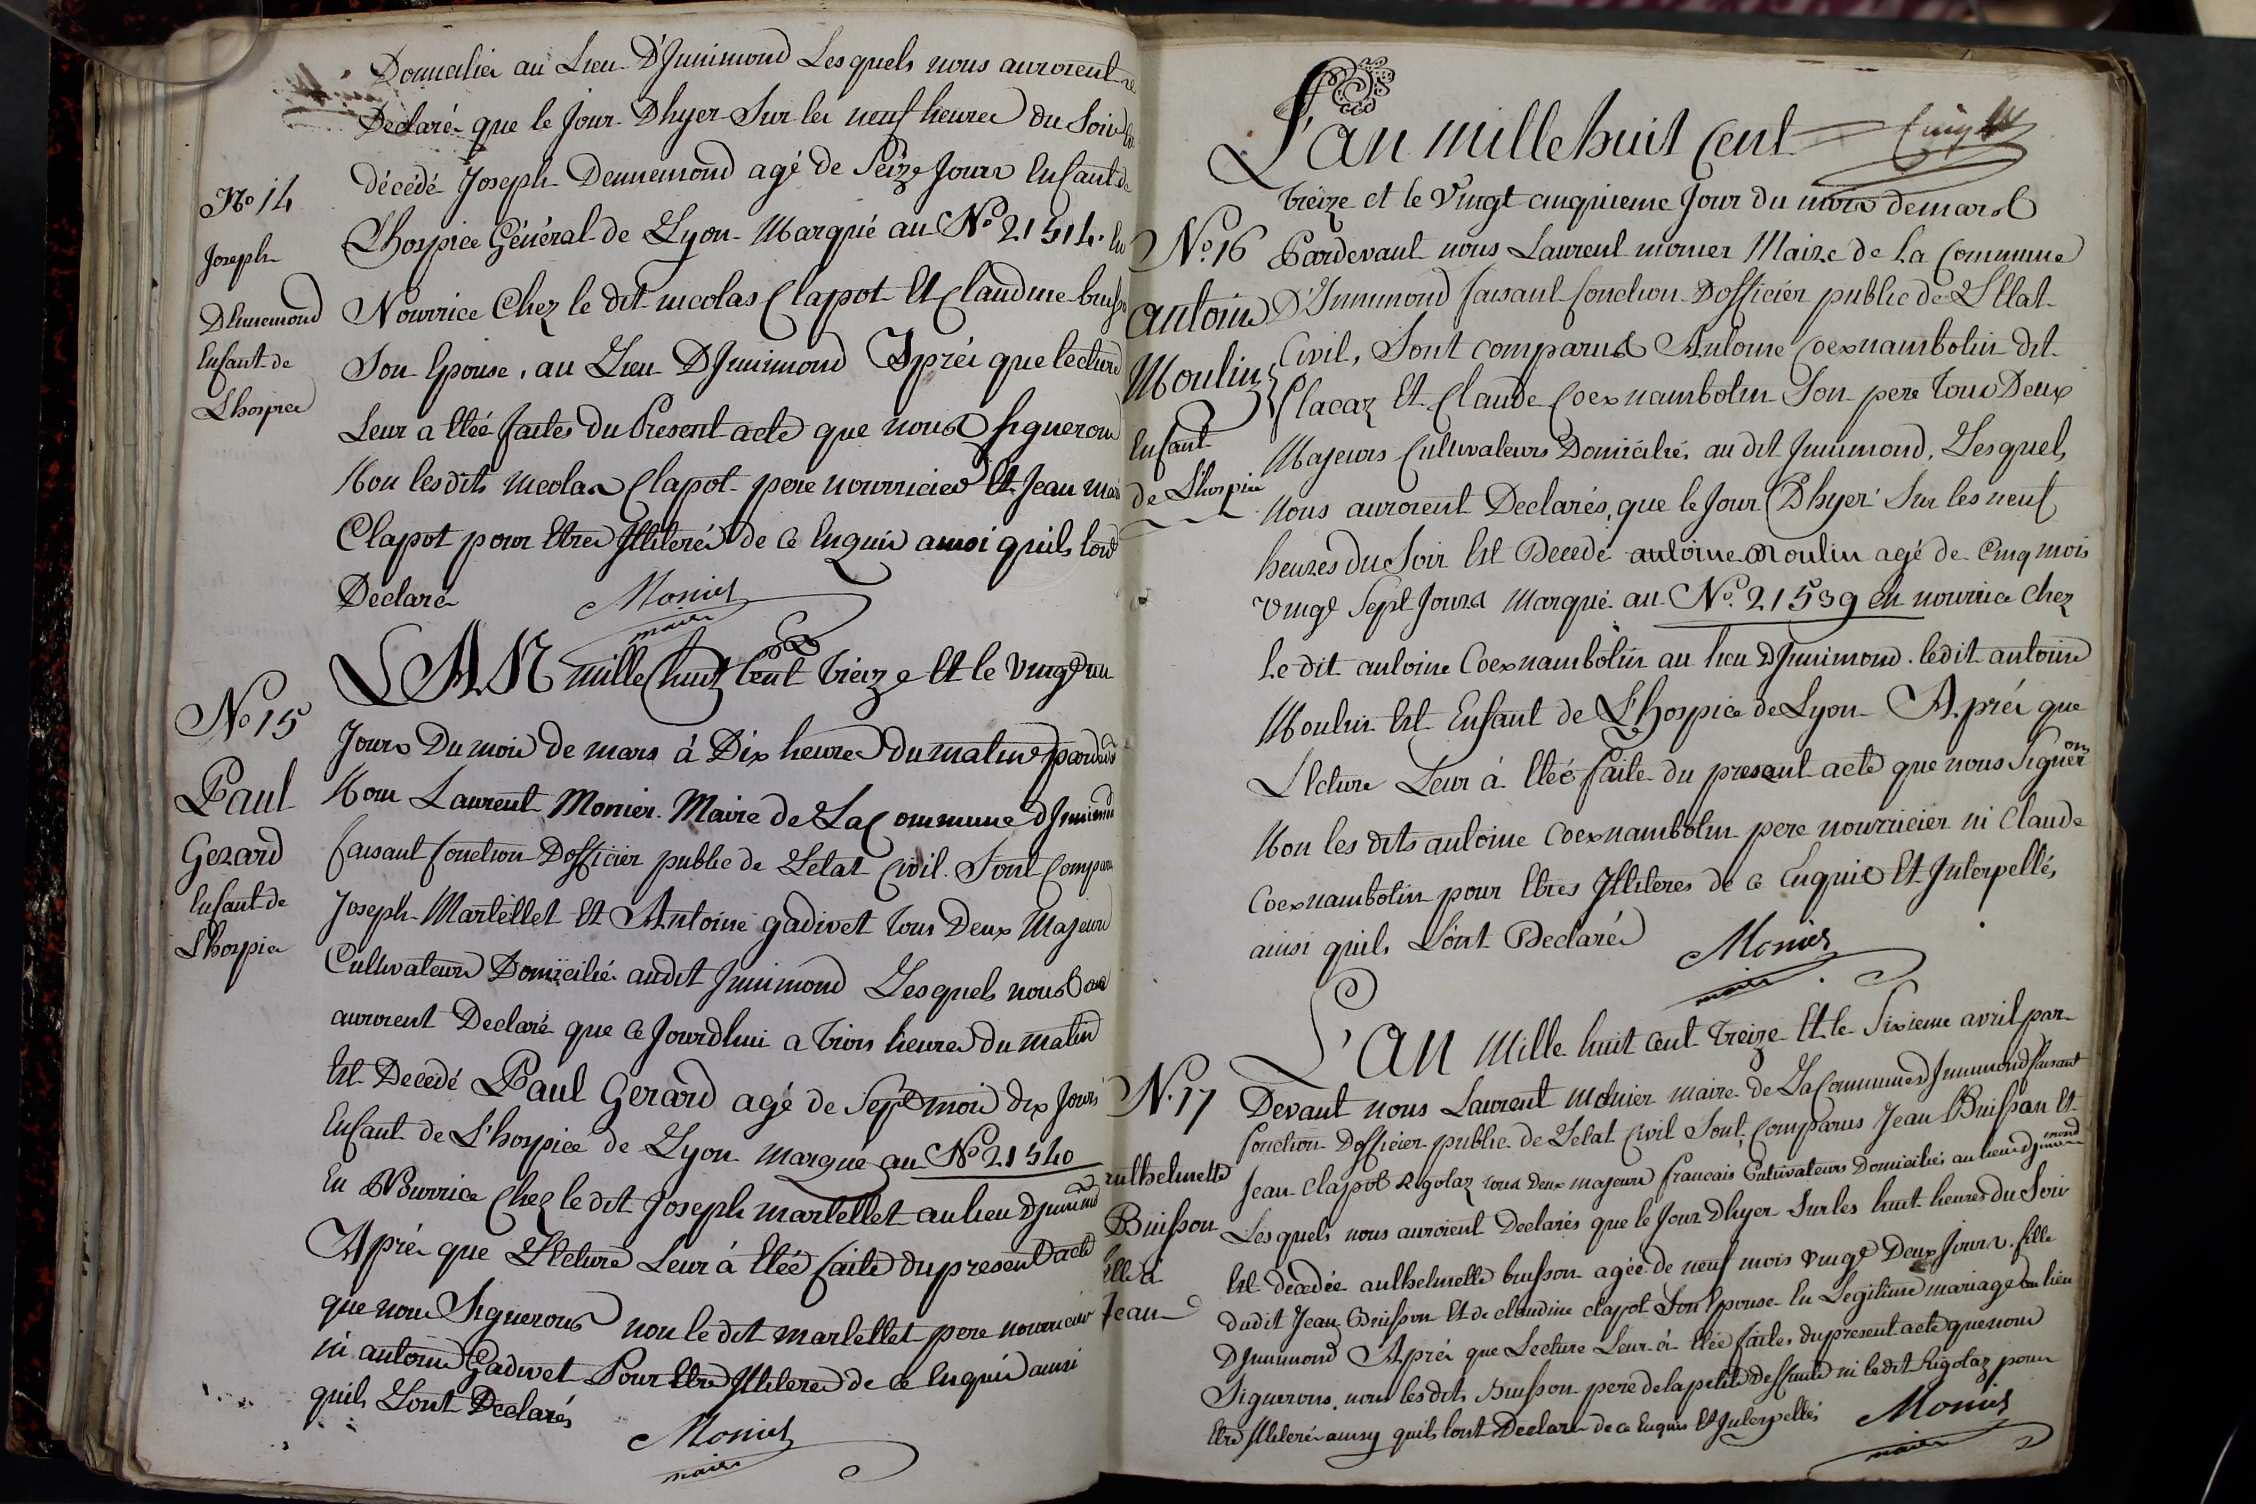 Domicilier au Lieu D'Jnnimond Lesquels nous auroient
Declaré que le Jour Dhyer Sur les neuf heures du Soir
No 14
décédé Joseph Dennemond agé de Seize Jours Enfant de
Joseph
L'hospice Général de Lyon Marqué au No 21514. En
Dennemond
Nourrice Chez le dit nicolas Clapot Et Claudine buisson
Enfant de
Son Epouse, au Lieu D'Jnnimond Aprés que lecture
L'hospice
Leur a Etée faites du Present acte que nous signerons
Non lesdits nicolas Clapot pere nourricier Et Jean
Clapot pour Etres Jlliterés de ce Enquis ainsi quils lont
Declaré
Monier
maire
No 15
L'AN mille huit Cent treize Et le vingt un
Paul
Jours Du mois de mars à Dix heures du matin pardevant
Gerard
Nous Laurent Monier Maire de La Commune d'Jnnimond
Enfant de
faisant fonction Dofficier public de L'etat Civil. Sont Comparus
L'hospice
Joseph Martellet Et Antoine gadivet tous Deux Majeurs
Cultivateurs Domicilié audit Jnnimond Lesquels nous
auroient Declaré que ce Jourdhui a trois heures du matin
Est Decedé Paul Gerard agé de Sept mois dix Jours
Enfant de L'hospice de Lyon marqué au No 21540
En Nourrice Chez le dit Joseph martellet au lieu d'Jnnimond
Aprés que Lecture Leur à Etée faite du present acte
que nous Signerons non le dit martellet pere nourricier
ni antoine Gadivet Pour Etre Jlliteres de ce Enquis ainsi
quils L'ont Declarés
Monier
maire
L'an mille huit Cent
treize et le vingt cinquieme Jour du mois demars
No 16
Pardevant nous Laurent monier Maire de la Commune
antoine
D'Jnnimond faisant fonction Dofficier public de L'Etat
Moulin
Civil, Sont comparus Antoine Coexnambolin dit
Clacaz Et Claude Coexnambolin Son pere tous Deux
Enfant
Majeurs Cultivateurs Domiciliés au dit Jnnimond, Lesquels
de L'hospice
Nous auroient Declarés, que le Jour Dhyer Sur les neuf
heures du Soir Est Decedé antoine Moulin agé de Cinq mois
vingt Sept Jours Marqué au No. 21539 en nourrice Chez
Le dit antoine Coexnambolin au lieu D'Jnnimond. ledit antoine
Moulin Est Enfant de L'hospice de Lyon Aprés que
Lecture Leur à Etée faite du present acte que nous Signerons
Non les dits antoine Coexnambolin pere nourricier ni Claude
Coexnambolin pour Etres Jlliteres de ce Enquis Et Interpellés,
ainsi quils L'ont Declarés
Monier
maire
L'an Mille huit cent treize Et le Sixieme avril par
N. 17
Devant nous Laurent Monier maire de La Commune d'Jnnimond faisant
fonction Dofficier public de L'etat Civil Sont Comparus Jean Buisson Et
anthelmette
Jean Clapot Rigolaz tous Deux majeurs francais Cultivateurs Domiciliés au lieu d'Jnnimond
Buisson
Lesquels nous auroient Declarés que le Jour Dhyer Sur les huit heures du Soir
fille à
Est decedée anthelmette buisson agée de neuf mois vingt Deux Jours. fille
Jean
dudit Jean Buisson Et de claudine clapot Son Epouse En Legitime mariage au lieu
D'Jnnimond Aprés que Lecture Leur à Etée faites du present acte que nous
Signerons, non les dits Buisson pere de la petite deffunte ni le dit Rigolaz pour
Etre Jlliteré ainsy quils lont Declare de ce Enquis Et Interpellés
Monier
maire